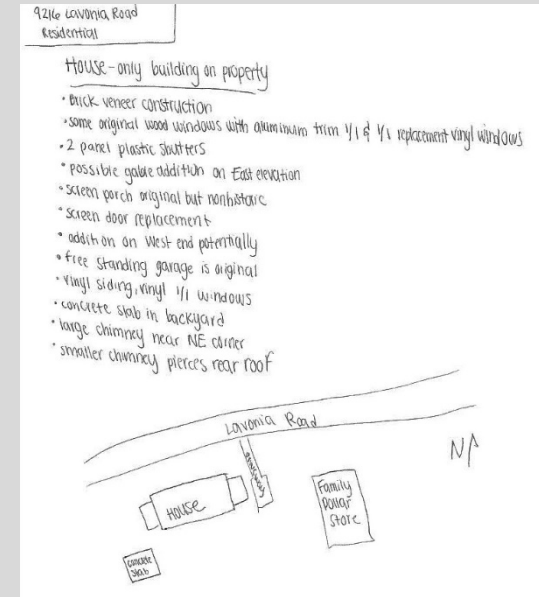 9216 Lavonia Road
Residential
House - only building on property
• Brick veneer construction
• some original wood windows with aluminum trim 1/1 & 1/1 replacement vinyl windows
• 2 panel plastic shutters
• possible gable addition on East elevation
• screen porch original but nonhistoric
• screen door replacement
• addition on West end potentially
• free standing garage is original
• vinyl siding, vinyl 1/1 windows
• concrete slab in backyard
• large chimney near NE corner
• smaller chimney pierces rear roof
Lavonia Road
N
House
Family
Dollar
Store
concrete
slab